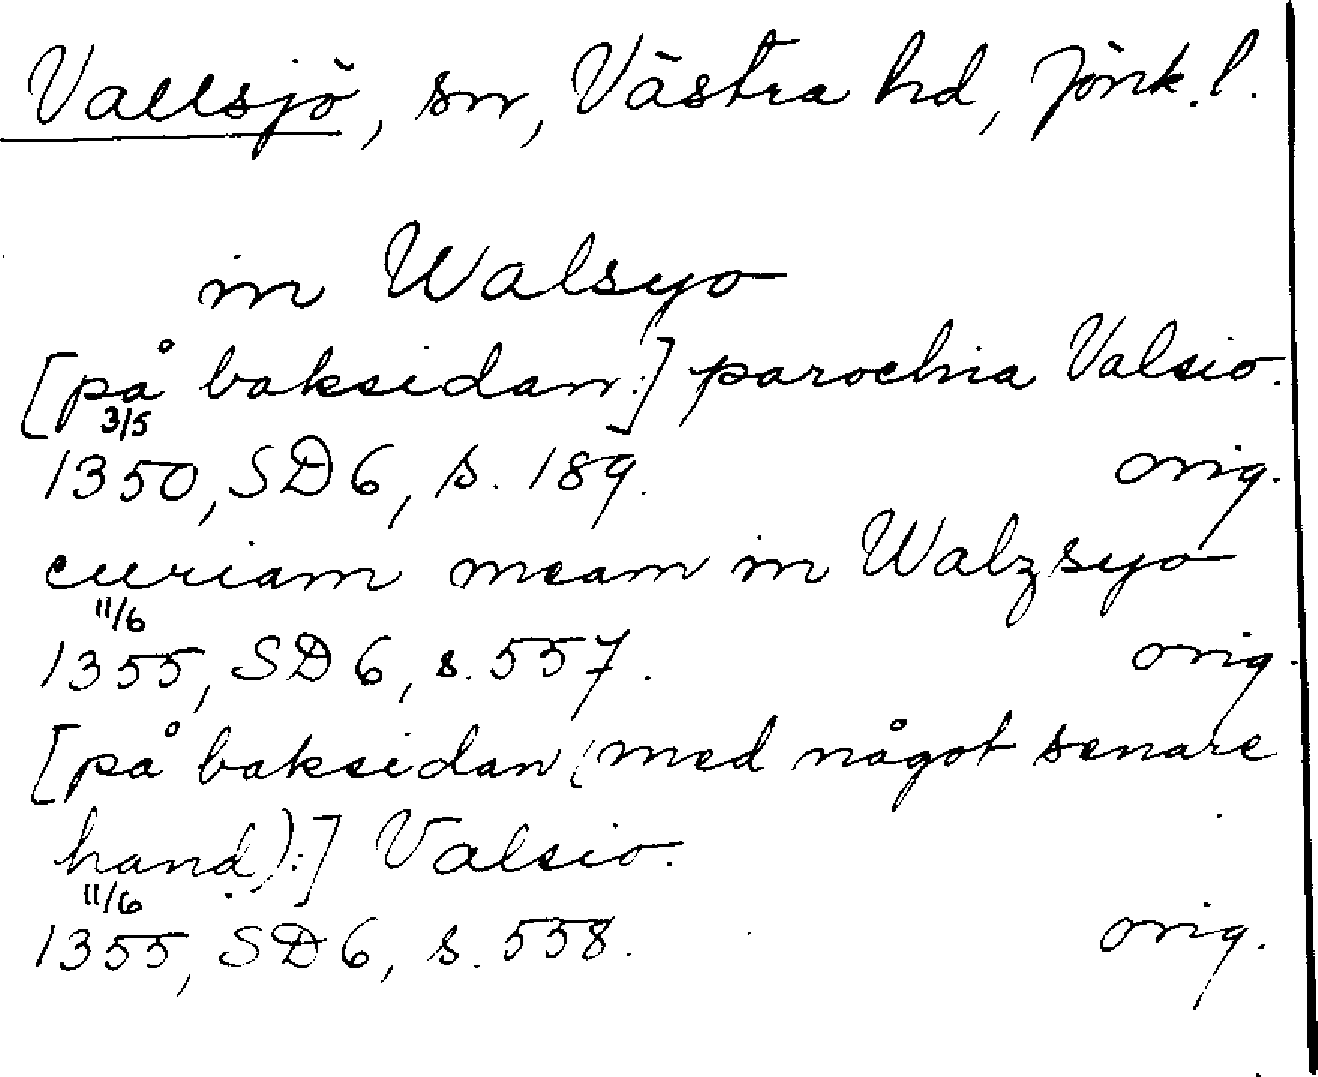 Vallsjö, sn, Västra hd, Jönk. l.
in Walsyo
[på baksidan:] parochia Valsio.
3/5
1350, SD 6, s. 189. orig.
curiam meam in Walzsyo
11/6
1355, SD 6, s. 557. orig.
[på baksidan (med något senare
hand):] Valsio.
11/6
1355, SD 6, s. 558. orig.